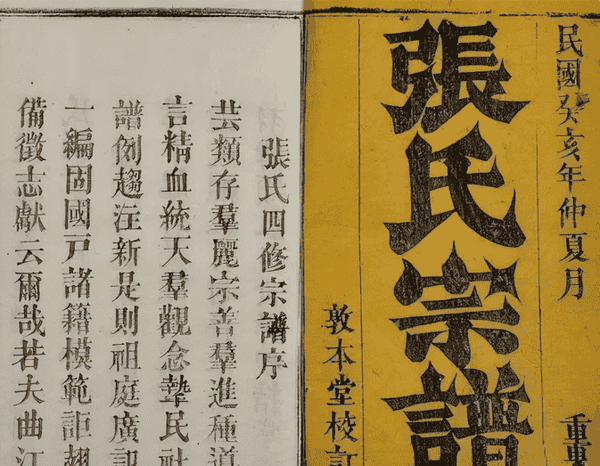 民國癸亥年仲夏月
重
張氏宗譜
敦本堂校訂
張氏四修宗譜序
芸類存羣麗宗善羣進種道
言精血統天羣觀念摯民社
譜例趨注新是則祖庭廣訓
一編固國尸諸籍模範詎翅
備徵志獻云爾哉若夫曲江